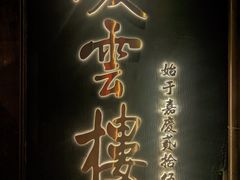 雲樓
始于嘉慶貳拾